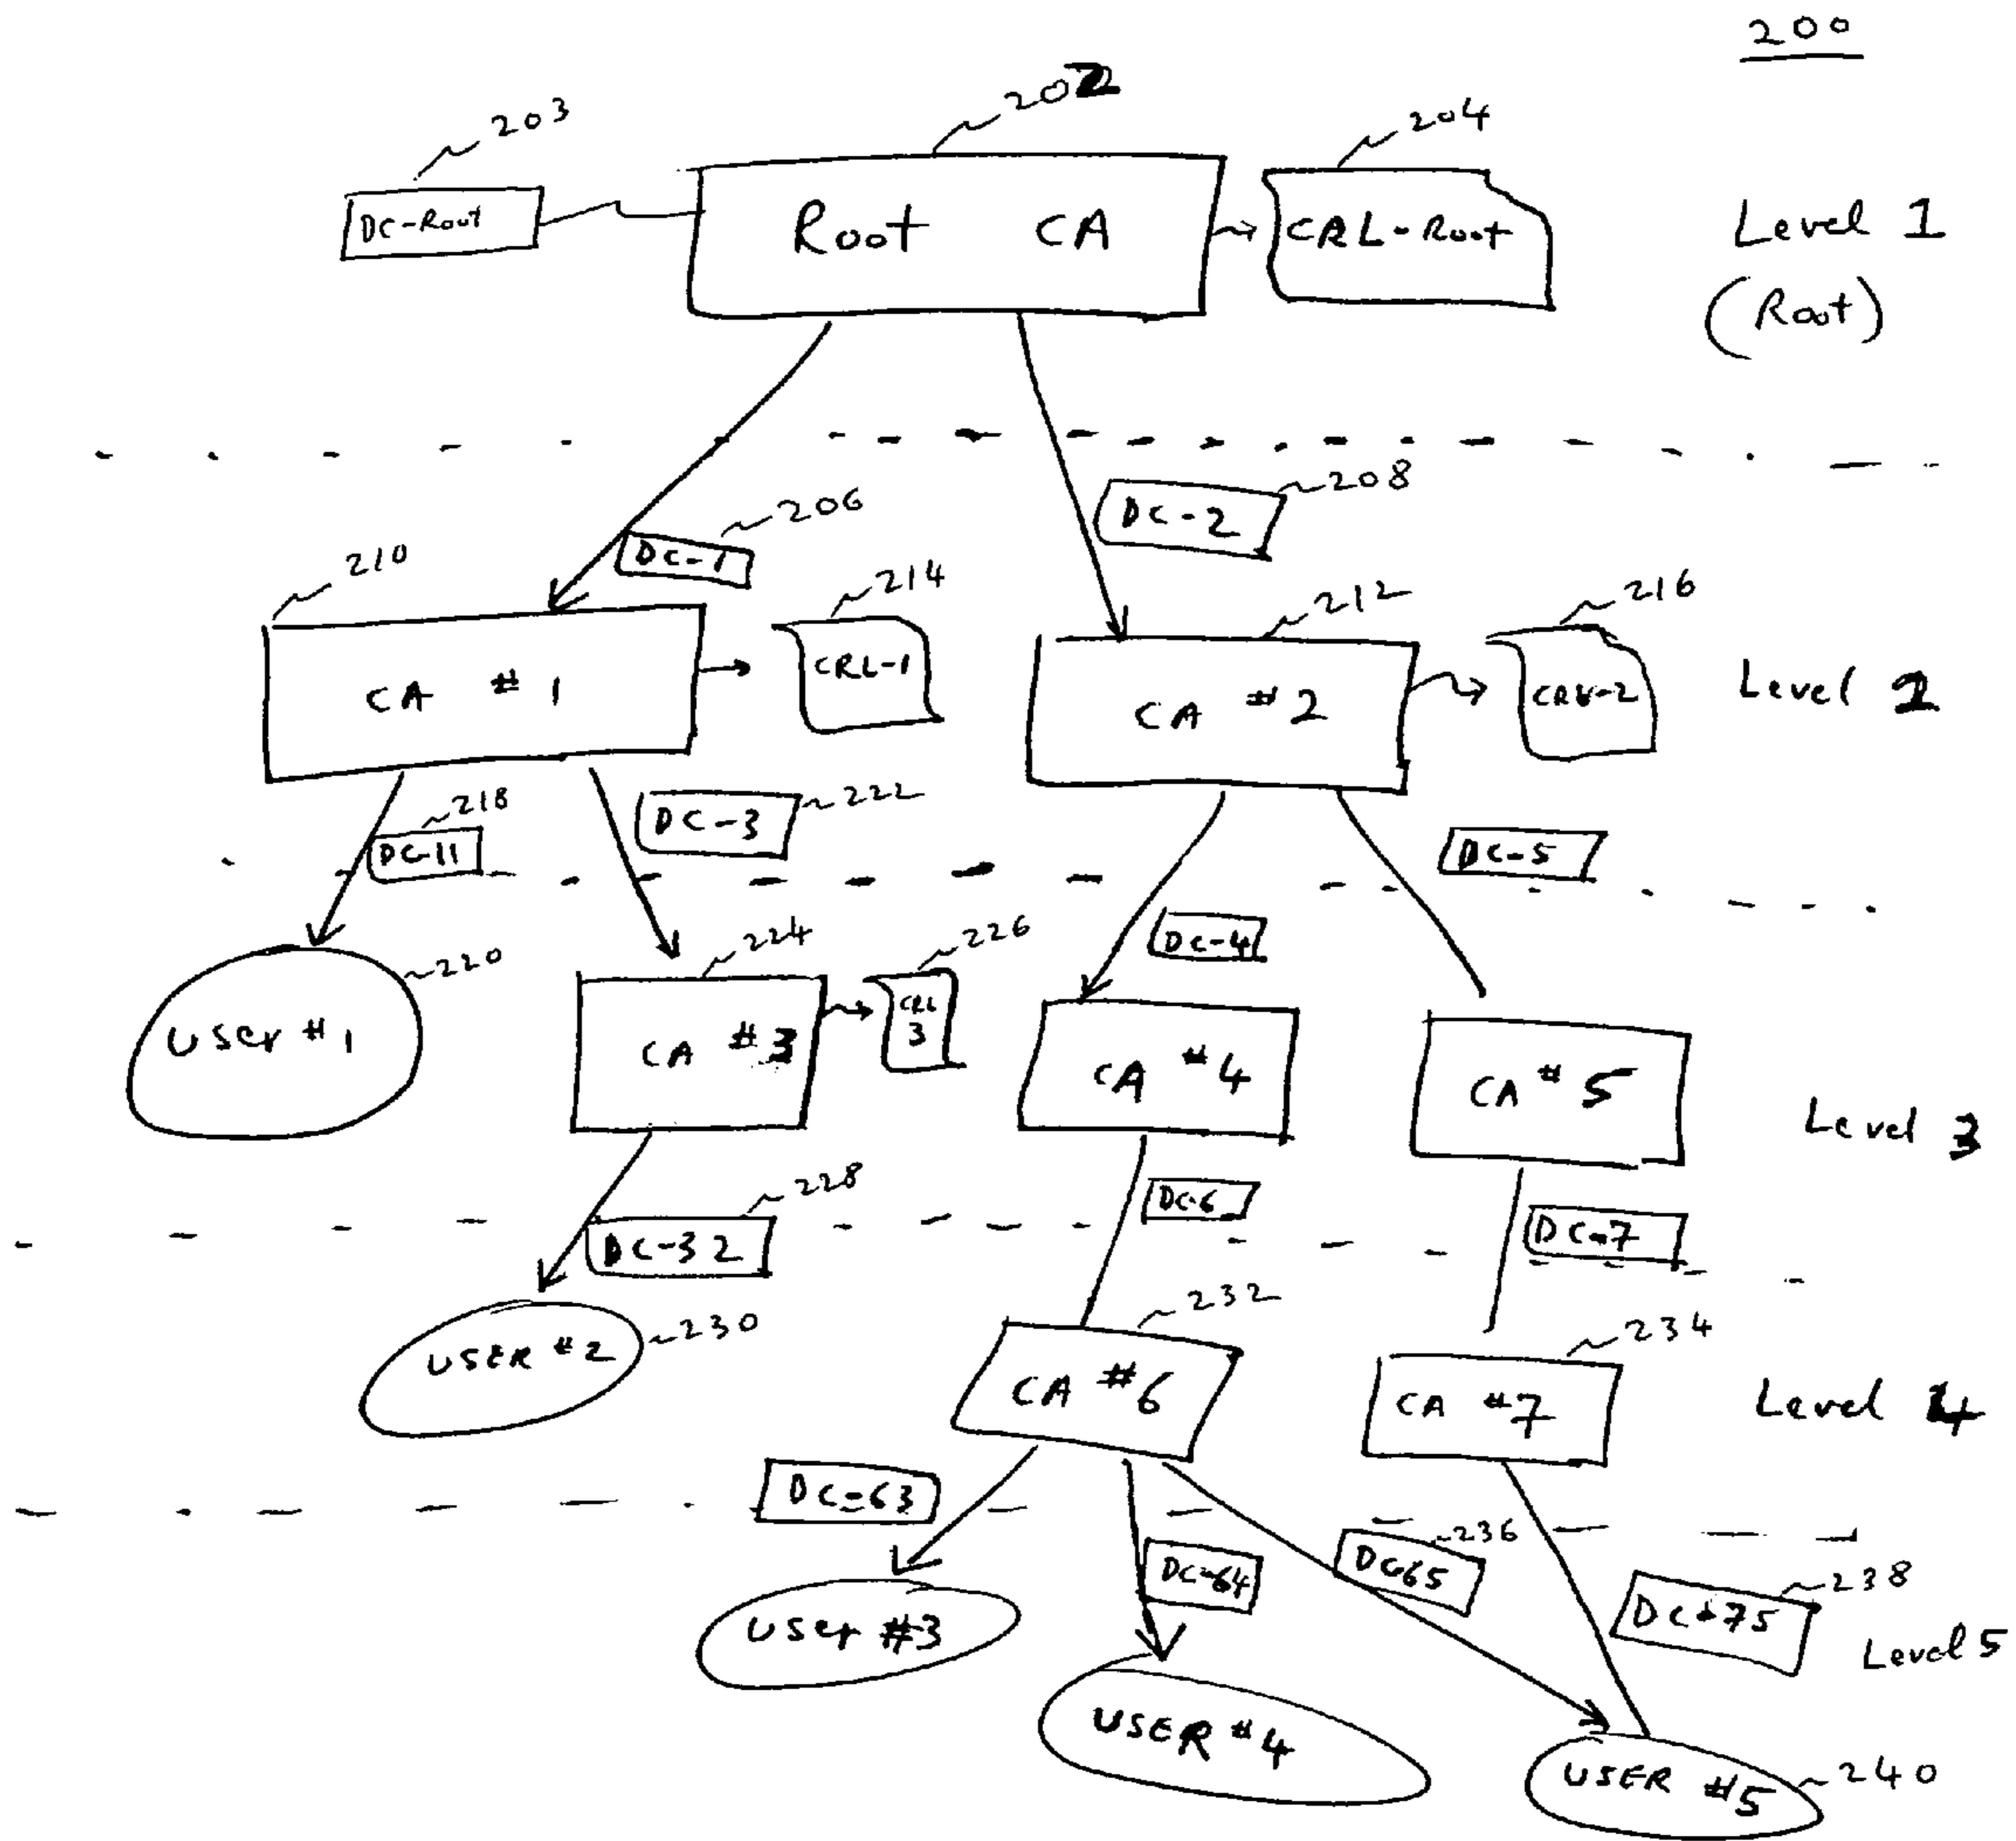 200
202
203
204
DC-Root
Root CA
CRL-Root
Level 1
(Root)
208
DC-2
206
DC-1
210
214
212
216
CA #1
CRL-1
CA #2
CRL-2
Level 2
218
DC-11
DC-3
222
DC-5
DC-4
220
224
226
User #1
CA #3
CRL
3
CA #4
CA #5
Level 3
228
DC-32
DC-6
DC-7
230
USER #2
232
234
CA #6
CA #7
Level 4
DC-63
DC-64
236
DC-65
238
DC-75
Level 5
User #3
USER #4
USER #5
240